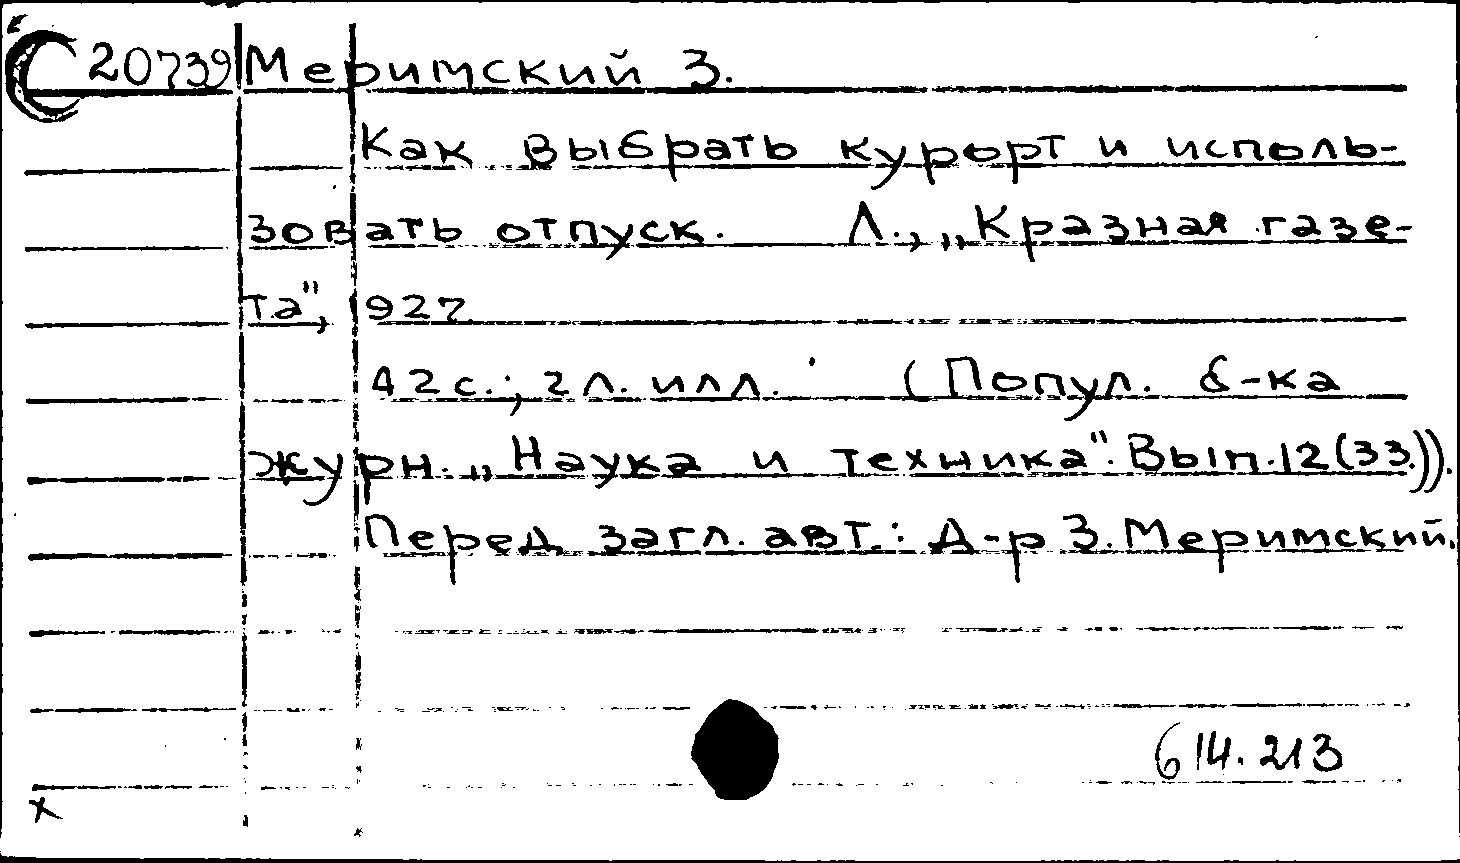 20739 Меримский З.
Как выбрать курорт и исполь-
зовать отпуск. Л., „Кразная газе-
та", 927
42с.; 2л. илл. (Попул. б-ка
журн. „Наука и техника". Вып. 12(33.)).
Перед загл. авт.: Д-р З. Меримский.
614.213
х